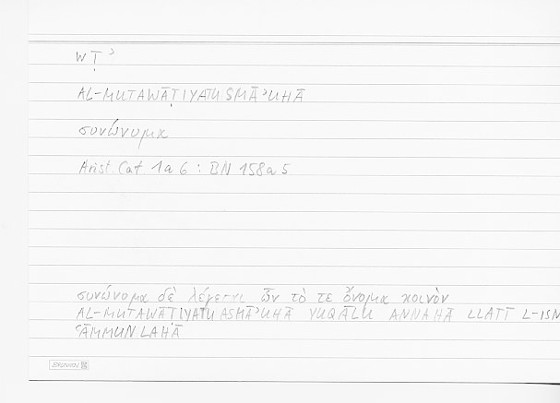 WṬʾ
AL-MUTAWĀṬIYATU ASMĀʾUHĀ
συνώνυμα
Arist. Cat. 1a6 : BN 158a5
συνώνυμα δὲ λέγεται ὧν τό τε ὄνομα κοινὸν
AL-MUTAWĀṬIYATU ASMĀʾUHĀ YUQĀLU ANNAHĀ LLATĪ L-ISM
ʿĀMMUN LAHĀ